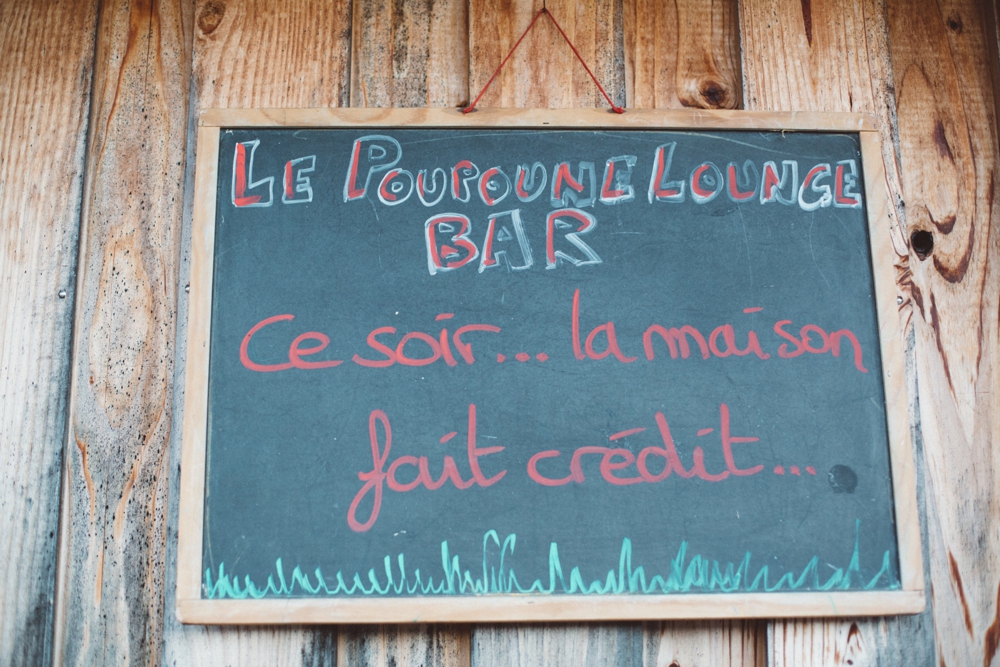 LE POUPOUNE LOUNGE
BAR
Ce soir... la maison
fait crédit...